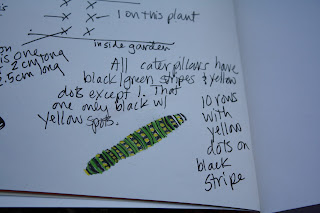 1 on this plant
inside garden
on
is one
2cm long
.5cm long
All caterpillars have
black/green stripes & yellow
dots except 1. That
one only black w/
yellow spots.
10 rows
with
yellow
dots on
black
stripe